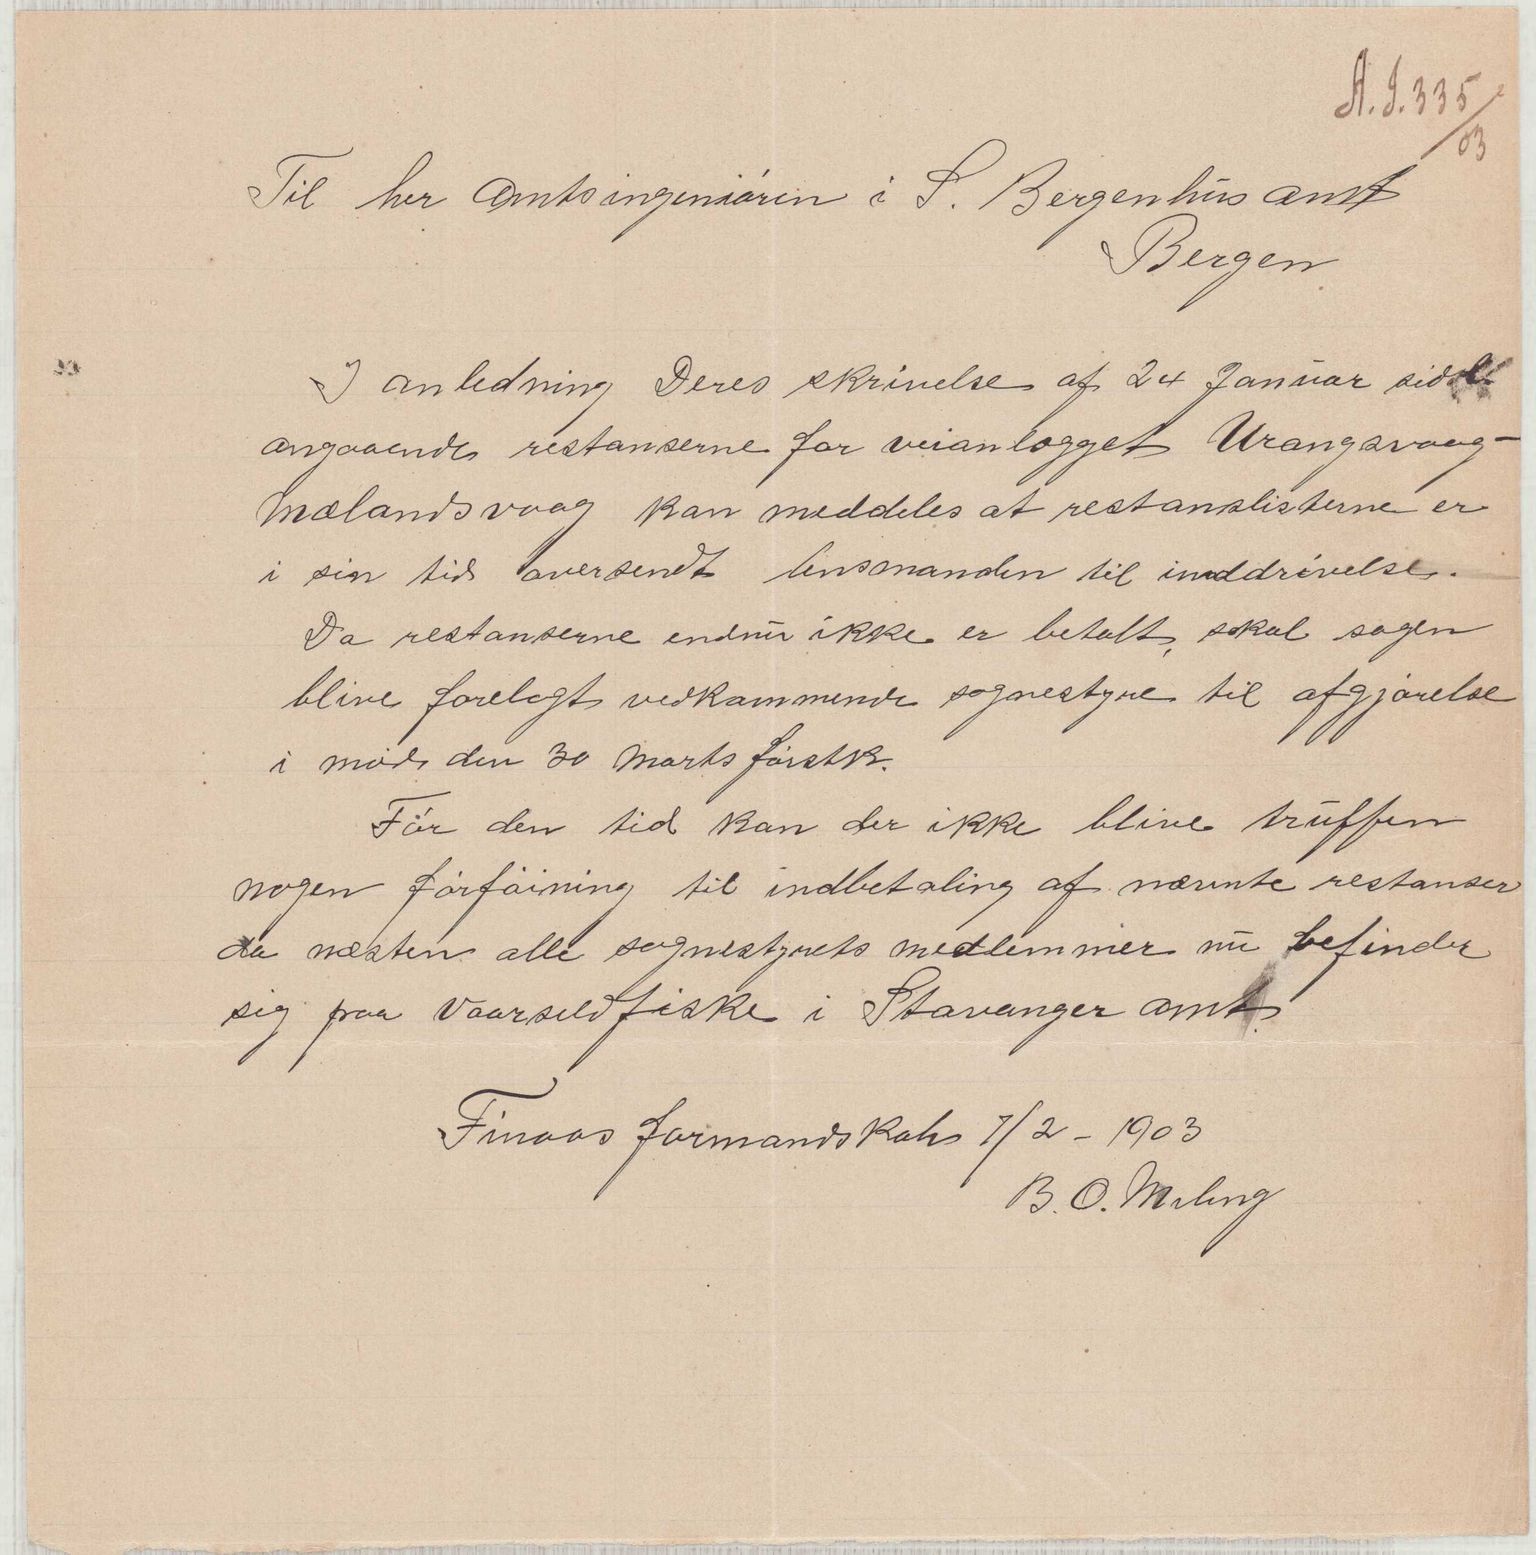 A. J. 335/03
Til her Amtsingeniören i S. Bergenhus amt
Bergen
I anledning Deres skrivelse af 24 Januar sidstl.
angaaende restanserne for veianlægget Urangsvaag-
Mælandsvaag kan meddeles at restanslisterne er
i sin tid oversendt lensmanden til inddrivelse.
Da restanserne endnu ikke er betalt, skal sagen
blive forelagt vedkommende sognestyre til afgjørelse
i möde den 30 Marts förstk.
Før den tid kan der ikke blive truffen
nogen forföining til indbetaling af nævnte restanser
da næsten alle sognestyrets medlemmer nu befinder
sig paa Vaarsildfiske i Stavanger amt.
Finaas formandskab 7/2 - 1903
B. O. Meling